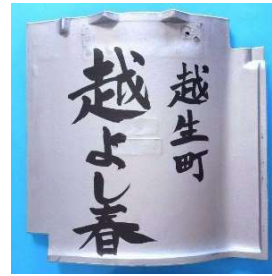 越生町
越よし春